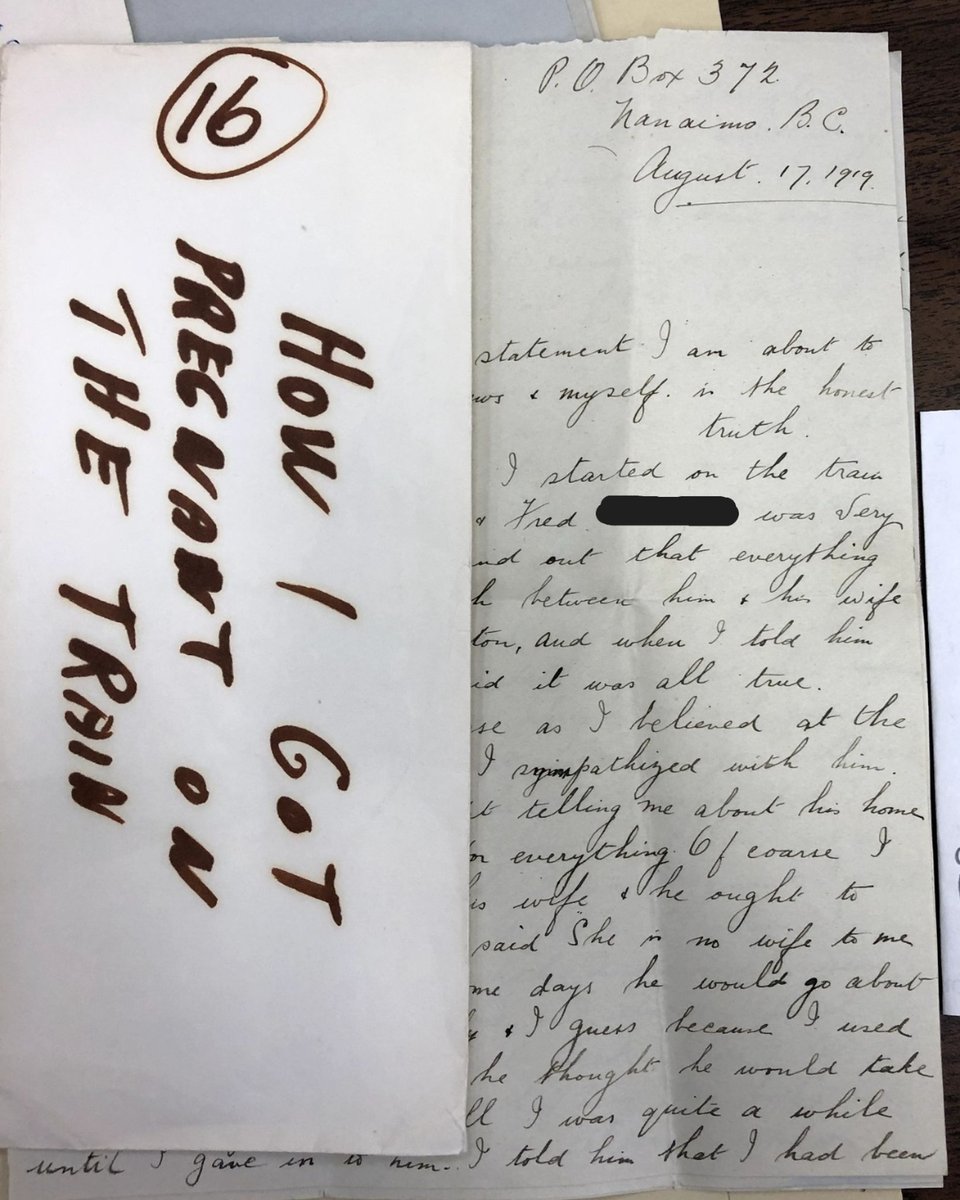 16
HOW I GOT
PREGNANT ON
THE TRAIN
P.O. Box 372
Nanaimo. B.C.
August. 17. 1919.
statement I am about to
& myself. is the honest
truth.
I started on the train
& Fred was very
out that everything
between him & his wife
and when I told him
it was all true.
as I believed at the
I sympathized with him.
telling me about his home
everything. Of coarse I
wife & he ought to
said "She is no wife to me
days he would go about
& I guess because I used
he thought he would take
I was quite a while
until I gave in to him. I told him that I had been